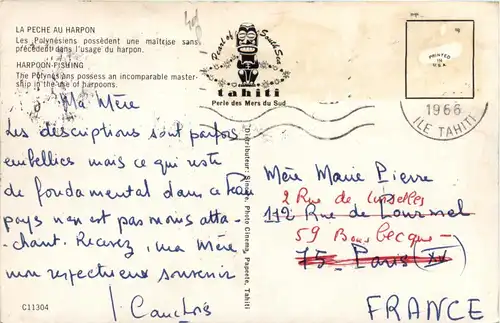 LA PECHE AU HARPON
Les Polynésiens possèdent une maîtrise sans
précédent dans l'usage du harpon.
HARPOON-FISHING
The Polynesians possess an incomparable master-
ship in the use of harpoons.
Pearl of South Sea
tahiti
Perle des Mers du Sud
PRINTED
IN
U.S.A.
1966
ILE TAHITI
Ma Mère
Les descriptions sont parfois
embellies mais ce qui reste
de fondamental dans ce beau
pays n'en est pas moins atta-
chant. Recevez, ma Mère
mon respectueux souvenir
C11304
Distributeur: Sincère, Photo Cinema, Papeete, Tahiti
Mère Marie Pierre
2 Rue de
112 Rue de Lourmel
59 Bousbecque
75 - Paris (XV)
FRANCE